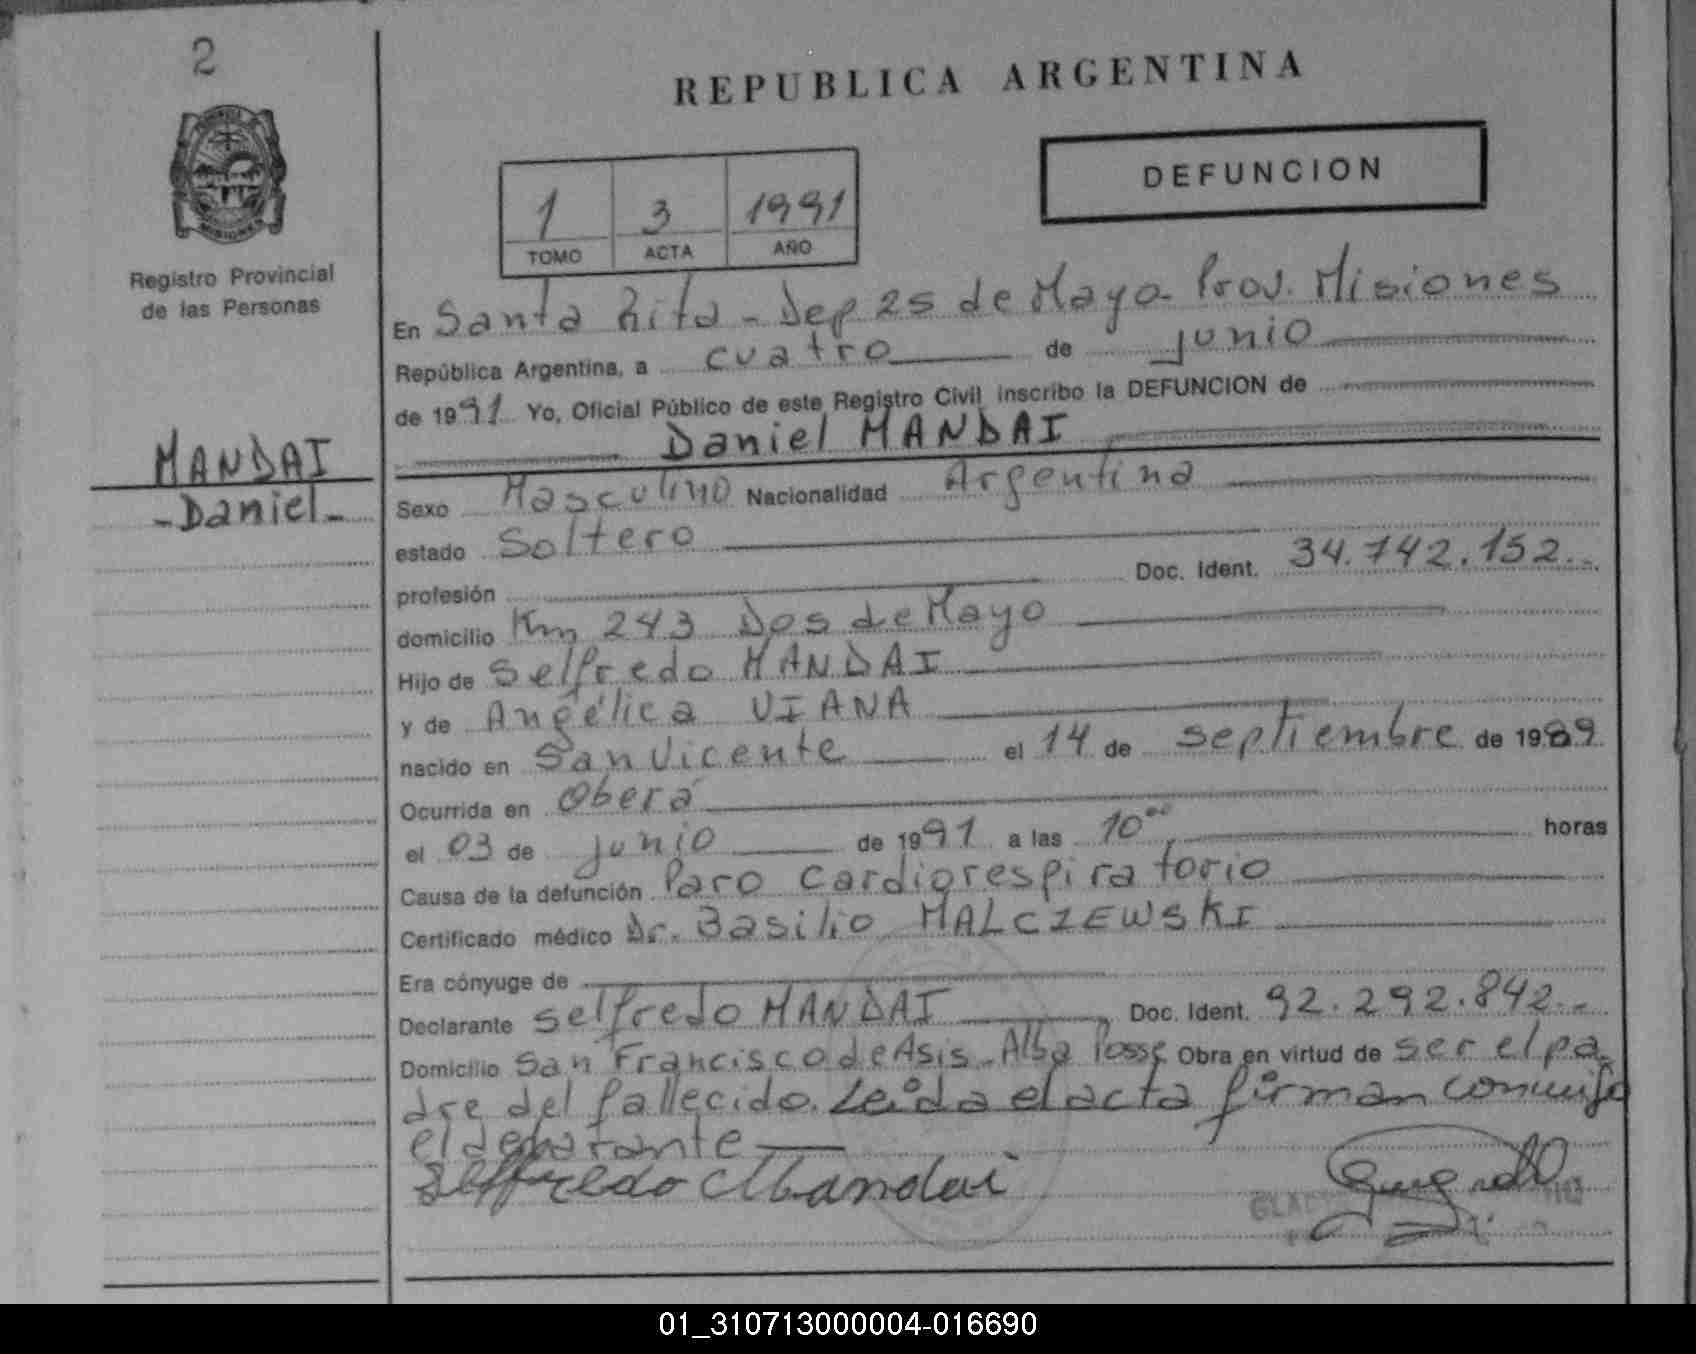 2
MISIONES
Registro Provincial
de las Personas
MANDAI
- Daniel -
REPUBLICA ARGENTINA
DEFUNCION
1 3 1991
TOMO ACTA AÑO
En Santa Rita - Dep 25 de Mayo - Prov. Misiones
República Argentina, a cuatro de junio
de 1991 Yo, Oficial Público de este Registro Civil inscribo la DEFUNCION de
Daniel MANDAI
Sexo Masculino Nacionalidad Argentina
estado Soltero
profesión Doc. Ident. 34.742.152.-
domicilio Km 243 Dos de Mayo
Hijo de Selfredo MANDAI
y de Angélica VIANA
nacido en San Vicente el 14 de septiembre de 1989
Ocurrida en Oberá
el 03 de junio de 1991 a las 10⁰⁰ horas
Causa de la defunción Paro cardiorespiratorio
Certificado médico Dr. Basilio MALCZEWSKI
Era cónyuge de
Declarante Selfredo MANDAI Doc. Ident. 92.292.842.-
Domicilio San Francisco de Asis - Alba Posse Obra en virtud de ser el pa
dre del fallecido. Leída el acta firman conmigo
el
Selfredo Mandai
01_310713000004-016690